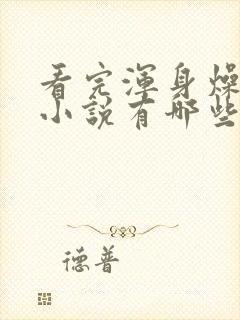 看完渾身燥
小說有哪些
德普